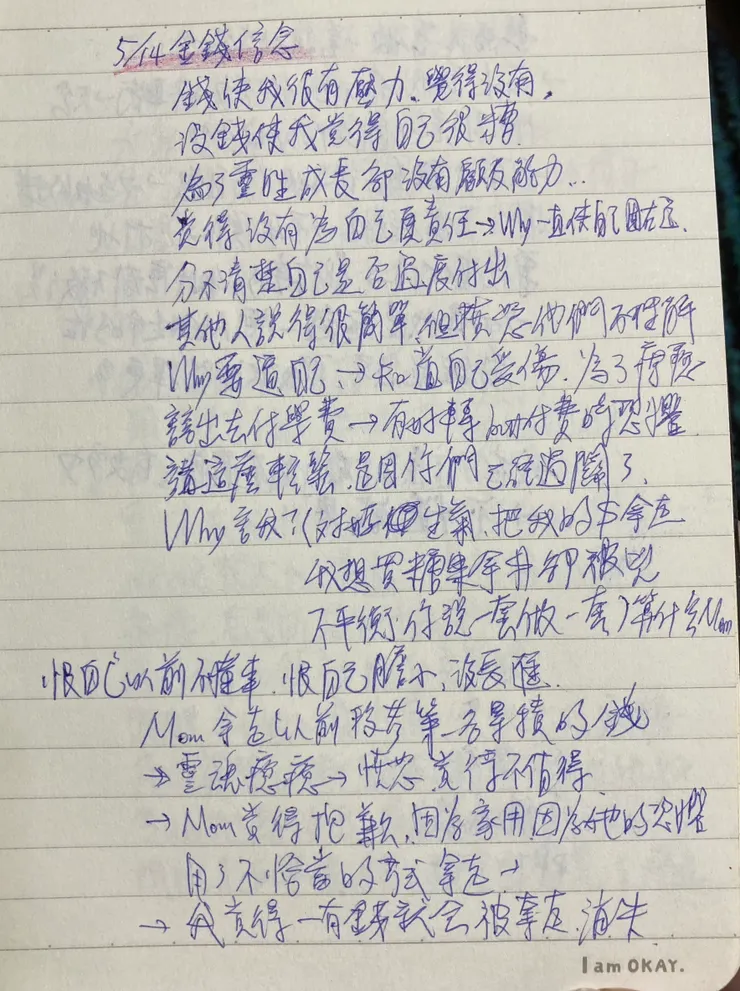 5/14 金錢信念
錢使我很有壓力、覺得沒有,
沒錢使我覺得自己很糟.
為了靈性成長卻沒有顧及能力..
覺得沒有為自己負責任→Why 一直使自己
分不清楚自己是否過度付出
其他人說得很簡單,但 他們不理解
Why 要逼自己、→知道自己受傷.為了療癒
請出去付學費→有好轉 付費時恐懼
講這麼輕鬆 是因你們已經過關了、
Why 害我了(對 生氣、把我的$拿走
我想買糖果拿出卻被兇
不平衡、你說一套做一套)算什麼Mom
恨自己以前不懂事、恨自己膽小、沒長進
Mom 拿走以前我考第一名累積的錢
→靈魂 →憤怒 覺得不值得
→Mom覺得抱歉,因為家用因為她的恐懼
用了不恰當的方式拿走→
→我覺得一有錢就會被拿走.消失
I am OKAY.